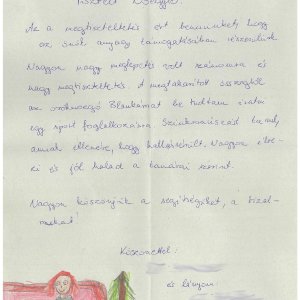 Tisztelt Csengje!
Az a megtiszteltetés ért bennünket, hogy
az Önök anyagi támogatásában részesülünk.
Nagyon nagy meglepetés volt számomra és
nagy megtiszteltetés. A megtakarított összegből
az örökmozgó Blankámat be tudtam íratni
egy sport foglalkozásra. Szinkronúszást tanul,
annak ellenére, hogy hallássérült. Nagyon élve-
zi és jól halad a tanárai szerint.
Nagyon köszönjük a segítségüket, a bizal-
mukat!
Köszönettel:
és lányom